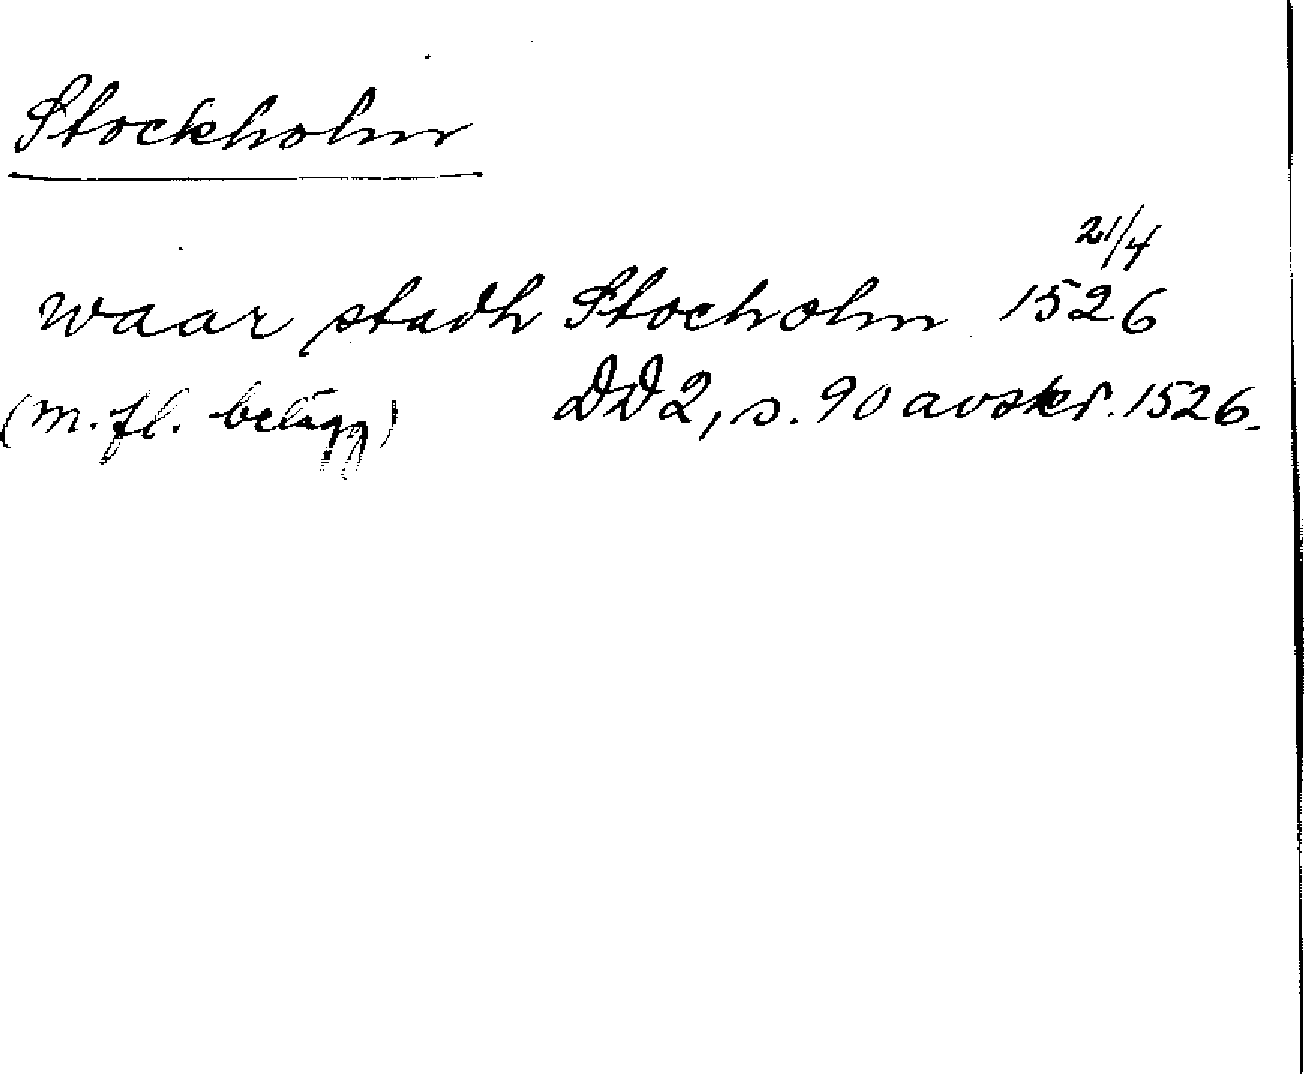 Stockholm
21/4
waar stadh Stocholm 1526
(m. fl. belägg) DD2, s. 90 avskr. 1526.